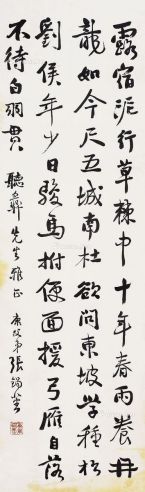 露宿泥行草棘中十年春雨養冉
龍如今尺五城南杜欲問東坡學種松
劉侯年少日駿馬拊便面援弓雁自落
不待白羽貫 聽彝先生雅正 弟張